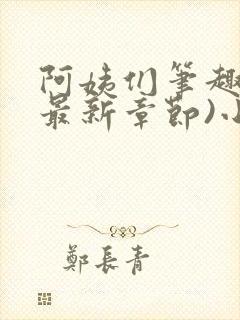 阿姨们筆趣
最新章節)小
鄭長青